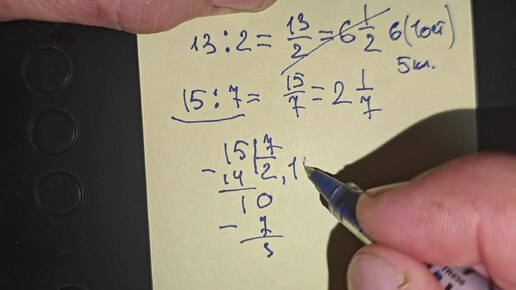 13:2= 13/2 = 6 1/2 6(1ост)
5кл.
15:7= 15/7 = 2 1/7
15|7
-14 2,1
10
- 7
3